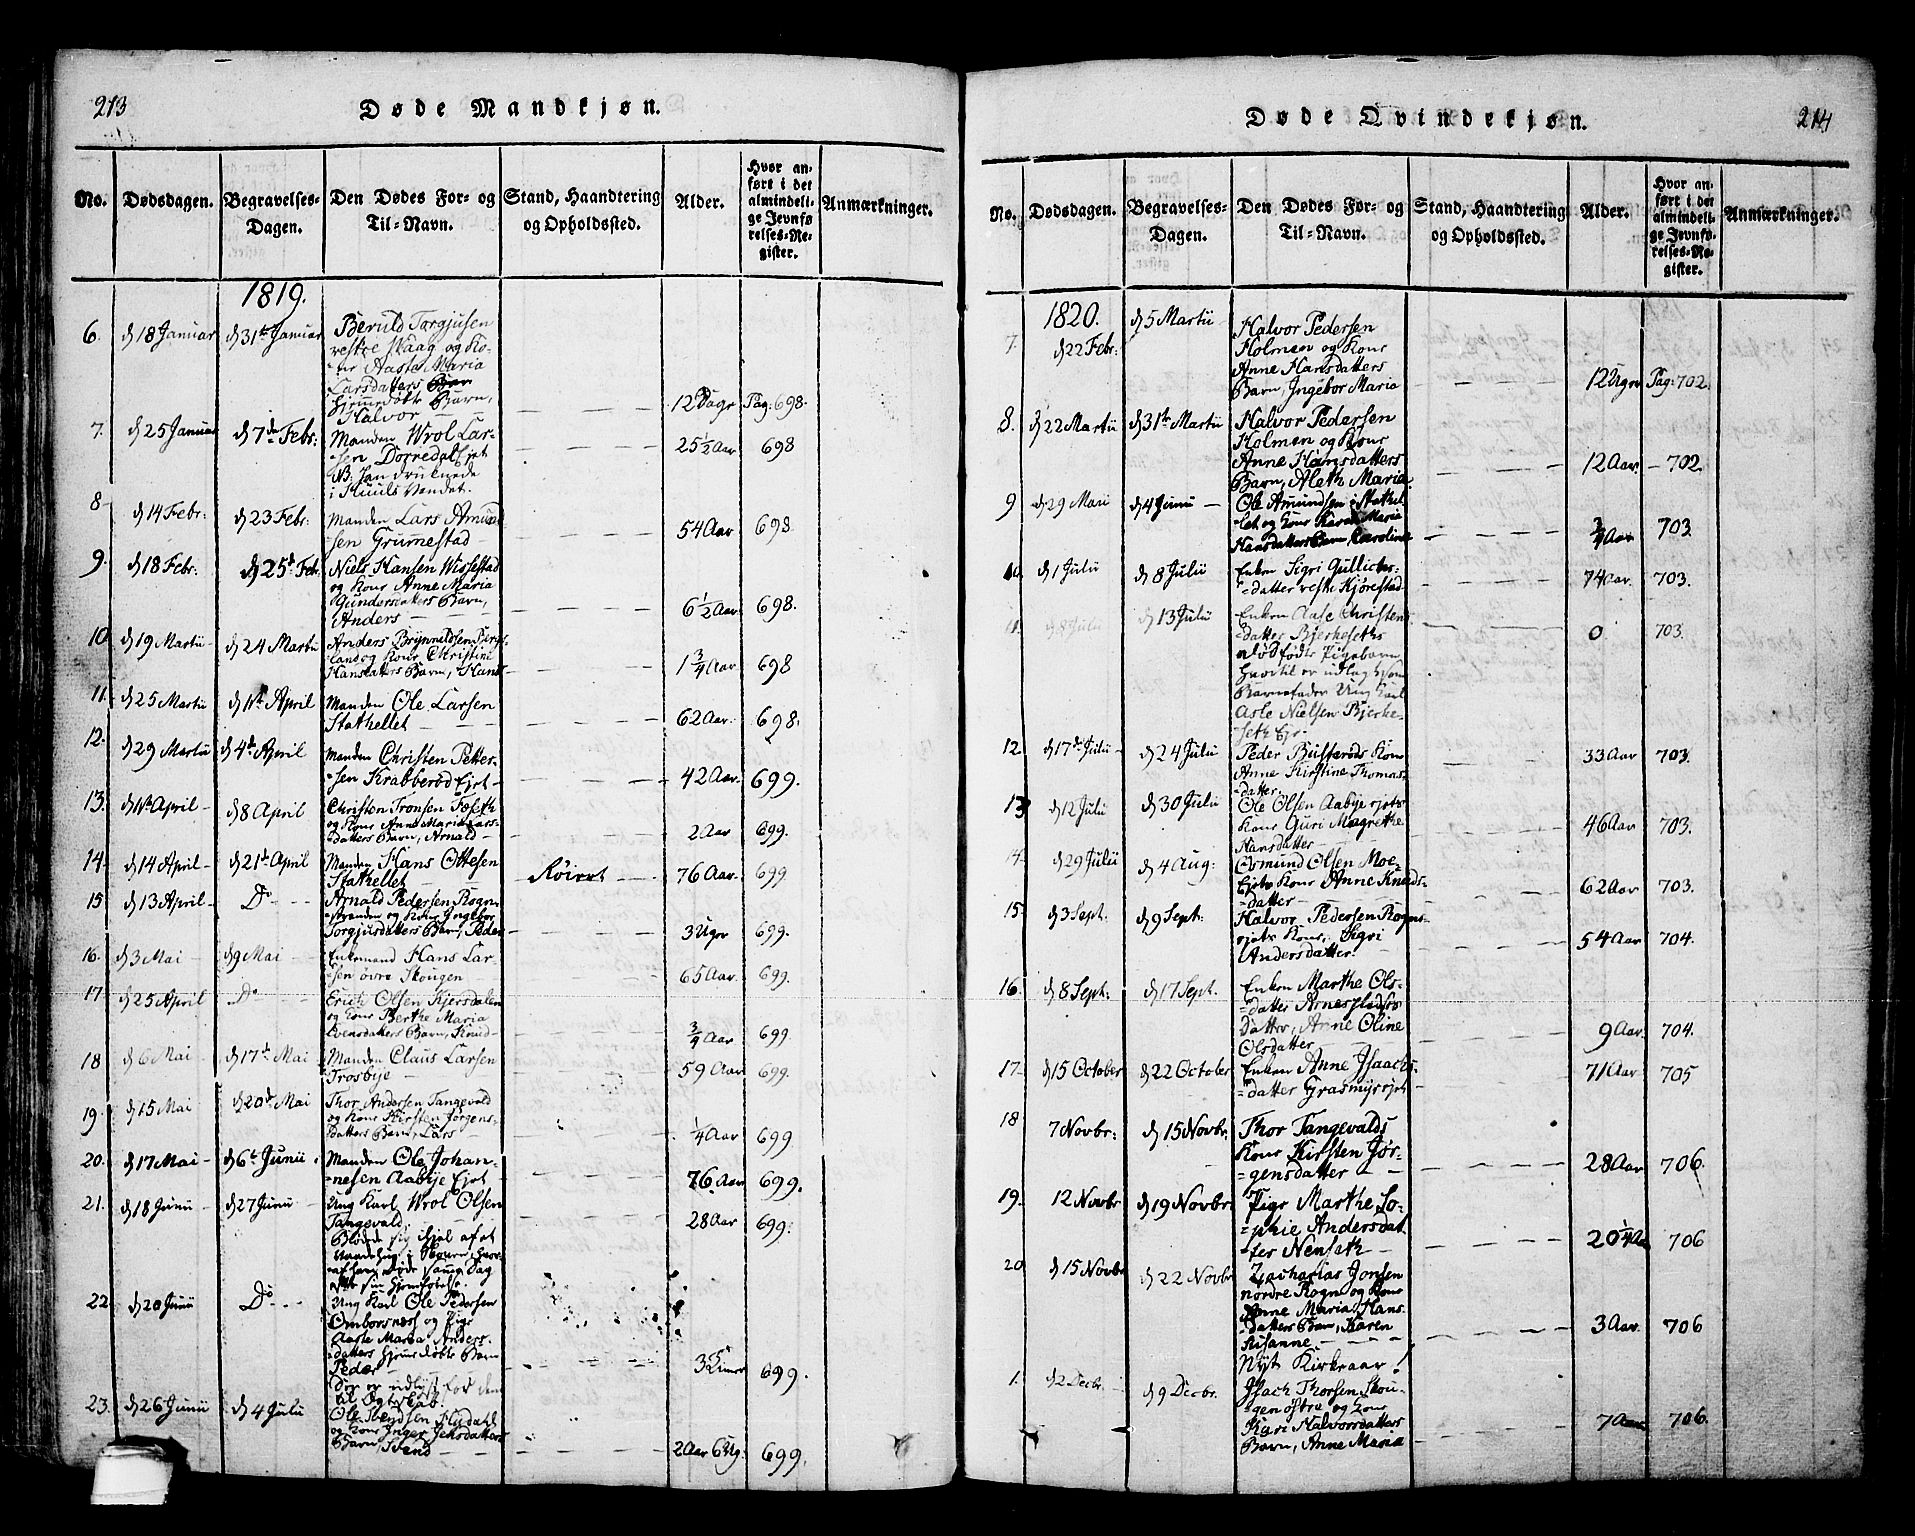 213
Døde Mandkjøn.
No. Dødsdagen. Begravelses-Dagen. Den Dødes For- og Til-Navn. Stand, Haandtering og Opholdssted. Alder. Hvor anført i det almindelige Jevnførelses-Register. Anmærkninger.
1819.
6. d 18 Januar d 31te Januar Beruld Torgjusen
vestre Skaag og Ko-
ne Aaste Maria
Larsdatters
hjemedøbte Barn,
Halvor — 12 Dage Pag: 698.
7. d 25 Januar d 7de Febr: Manden Wrol Lar-
sen Dorredal Ejet
NB: han druknede
i Vandet. 25½ Aar 698
8 d 14 Febr: d 23 Febr: Manden Lars Amund
sen Grummestad — 54 Aar 698.
9. d 18 Febr: d 25de Feb: Niels Hansen Wissestad
og Kone Anne Maria
Gundersdatters Barn,
Anders — 6½ Aar 698.
10. d 19 Martii d 24 Martii Anders Brynnildsen
land og Kone Christine
Hansdatters Barn, Hans 1¾ Aar 698
11. d 25 Martii d 1ste April Manden Ole Larsen
Stathellet — 62 Aar 698.
12. d 29 Martii d 4de April Manden Christen Petter-
sen Krabberød Ejet — 42 Aar 699.
13. d 1ste April d 8 April Christen Tronsen Foseth
og Kone Anne Maria Lars-
datters Barn, Arnold — 2 Aar 699.
14. d 14 April d 21de April Manden Hans Ottesen
Stathellet — 76 Aar 699
15 d 13 April Do Arnold Pedersen Rogn-
stranden og Kone Ingebor
Torgjusdatters Barn, Peder 3 Uger 699.
16. d 3 Mai d 9 Mai Enkemand Hans Lar-
sen øvre Skougen 65 Aar 699.
17 d 25 April Do Erich Olsen Kjersdalen
og Kone Berthe Maria
Evensdatters Barn, Knud — ¾ Aar 699.
18 d 6 Mai d 17de Mai Manden Claus Larsen
Trosbye — 59 Aar 699.
19. d 15 Mai d 20de Mai Thor Andersen Tangevald
og Kone Kirsten Jørgens-
datters Barn, Lars — ¼ Aar 699
20. d 17 Mai d 6te Junii Manden Ole Johan-
nesen Aabye Ejet — 76 Aar 699.
21. d 18 Junii d 27 Junii Ung Karl Wrol Olsen
Tangevald,
Blødde sig ihjel af et
i Skoven, hvor-
af han døde samme Dag
28 Aar 699.
22 d 20 Junii Do Ung Karl Ole Pedersen
Omborsnes og Pige
Aaste Maria Anders-
datters hjemedøbte Barn
Peder —
Der er udlyst for dem
til Ægteskab. 699.
23. d 26 Junii d 4 Julii Ole Svendsen
og Kone Inger
Barn, Svend 2 Aar 6 Ug: 699.
214
Døde Qvindekjøn.
No. Dødsdagen. Begravelses-Dagen. Den Dødes For- og Til-Navn. Stand, Haandtering og Opholdssted. Alder. Hvor anført i det almindelige Jevnførelses-Register. Anmærkninger.
1820.
7. d 22 Febr: d 5 Martii Halvor Pedersen
Holmen og Kone
Anne Hansdatters
Barn, Ingebor Maria 12 Uger Pag: 702.
8. d 22 Martii d 31te Martii Halvor Pedersen
Holmen og Kone
Anne Hansdatters
Barn, Aleth Maria. 12 Aar 702
9 d 29 Mari d 4 Junii Ole Amundsen i Stathel-
let og Kone Karen Maria
Hansdatters Barn, Caroline ¾ Aar 703
10. d 1 Julii d 8 Julii Enken Sigri Gullichs-
datter vestre Kjørestad 74 Aar. 703.
11. d 8 Julii d 13 Julii Enken Aase Christens
datter Bjerkeseths
dødfødte Pigebarn
hvortil er udlagt som
Barnefader Ung Karl
Asle Nielsen Bjerke-
seth Eje 0 703.
12. d 17de Julii d 24 Julii Peder Buserøds Kone
Anne Kirstine Thomas-
datter. 33 Aar 703.
13 d 12 Julii d 30 Julii Ole Olsen Aabye ejets
Kone Guri Magrethe
Hansdatter — 46 Aar 703.
14 d 29 Julii d 4 Aug: Osmund Olsen Moe-
Ejets Kone Anne Knuds-
datter — 62 Aar 703.
15. d 3 Sept. d 9 Sept: Halvor Pedersen Rogns-
ejets Kone, Sigri
Andersdatter. 54 Aar 704.
16. d 8 Sept: d 17 Sept. Enken Marthe Ols-
datter Arnespladsets
Datter, Anne Oline
Olsdatter — 9 Aar 704.
17. d 15 October d 22 October Enken Anne Isaachs-
datter Grasmyrejet — 71 Aar 705
18 7 Novbr: d 15 Novbr. Thor Tangevalds
Kone Kirsten Jør-
gensdatter — 28 Aar 706.
19. 12 Novbr d 19 Novbr. Pige Marthe So-
phie Andersdat-
ter Nenseth — 20¼ Aar 706
20 d 15 Novbr d 22 Novbr Zacharias Jonsen
nordre Rogn og Kone
Anne Maria Hans-
datters Barn, Karen
Susanne — 3 Aar. 706
Nyt Kirkeaar!
1. d 2 Decbr. d 9 Decbr. Isach Thorsen Skou-
gen østre og Kone
Kari Halvorsdatters
Barn, Anne Maria 7 Aar 706.